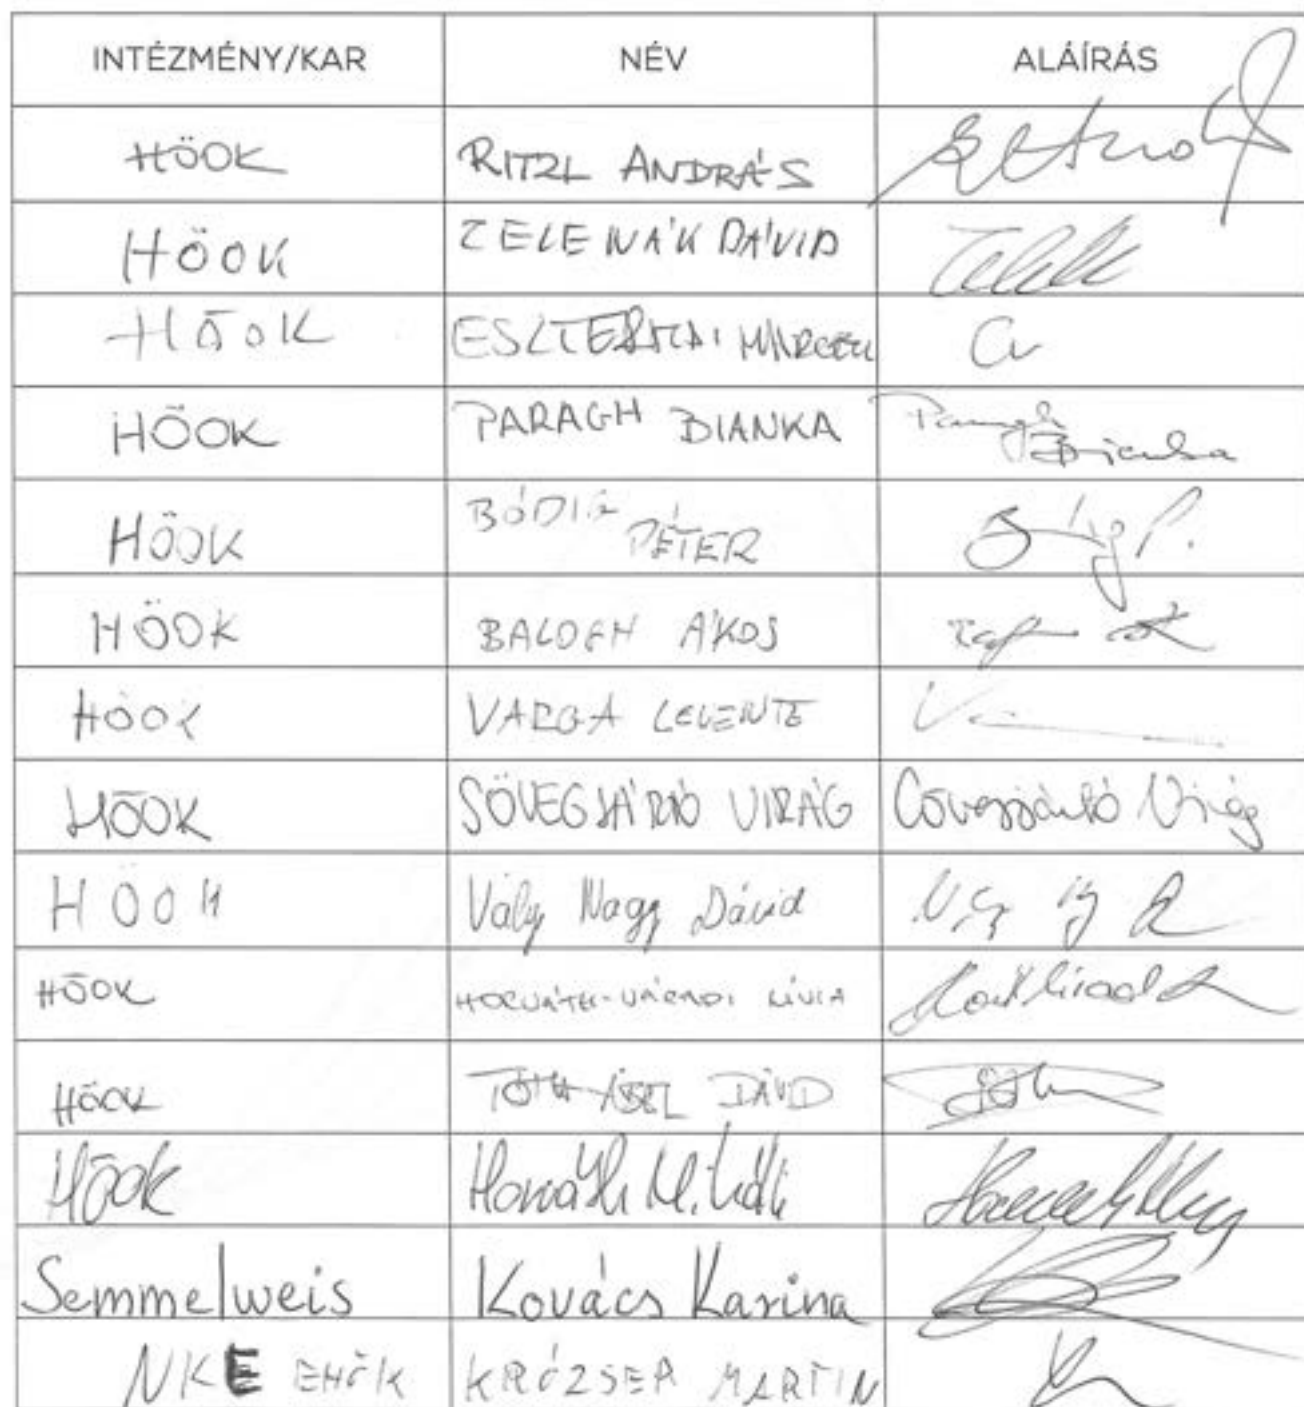 INTÉZMÉNY/KAR NÉV ALÁÍRÁS
HÖOK RITZL ANDRÁS
HÖOK ZELENÁK DÁVID
HÖOK MARCELL
HÖOK PARAGH BIANKA Paragh Bianka
HÖOK BÓDIG PÉTER
HÖOK BALOGH ÁKOS
HÖOK VARGA LEVENTE
HÖOK SÖVEGJÁRTÓ VIRÁG Sövegjártó Virág
HÖOK Vály Nagy Dávid
HÖOK HORVÁTH-VÁRADI LÍVIA
HÖOK TÓTH-ÁBEL DÁVID
HÖOK Horváth Mihály
Semmelweis Kovács Karina
NKE EHÖK KRÓZSER MARTIN